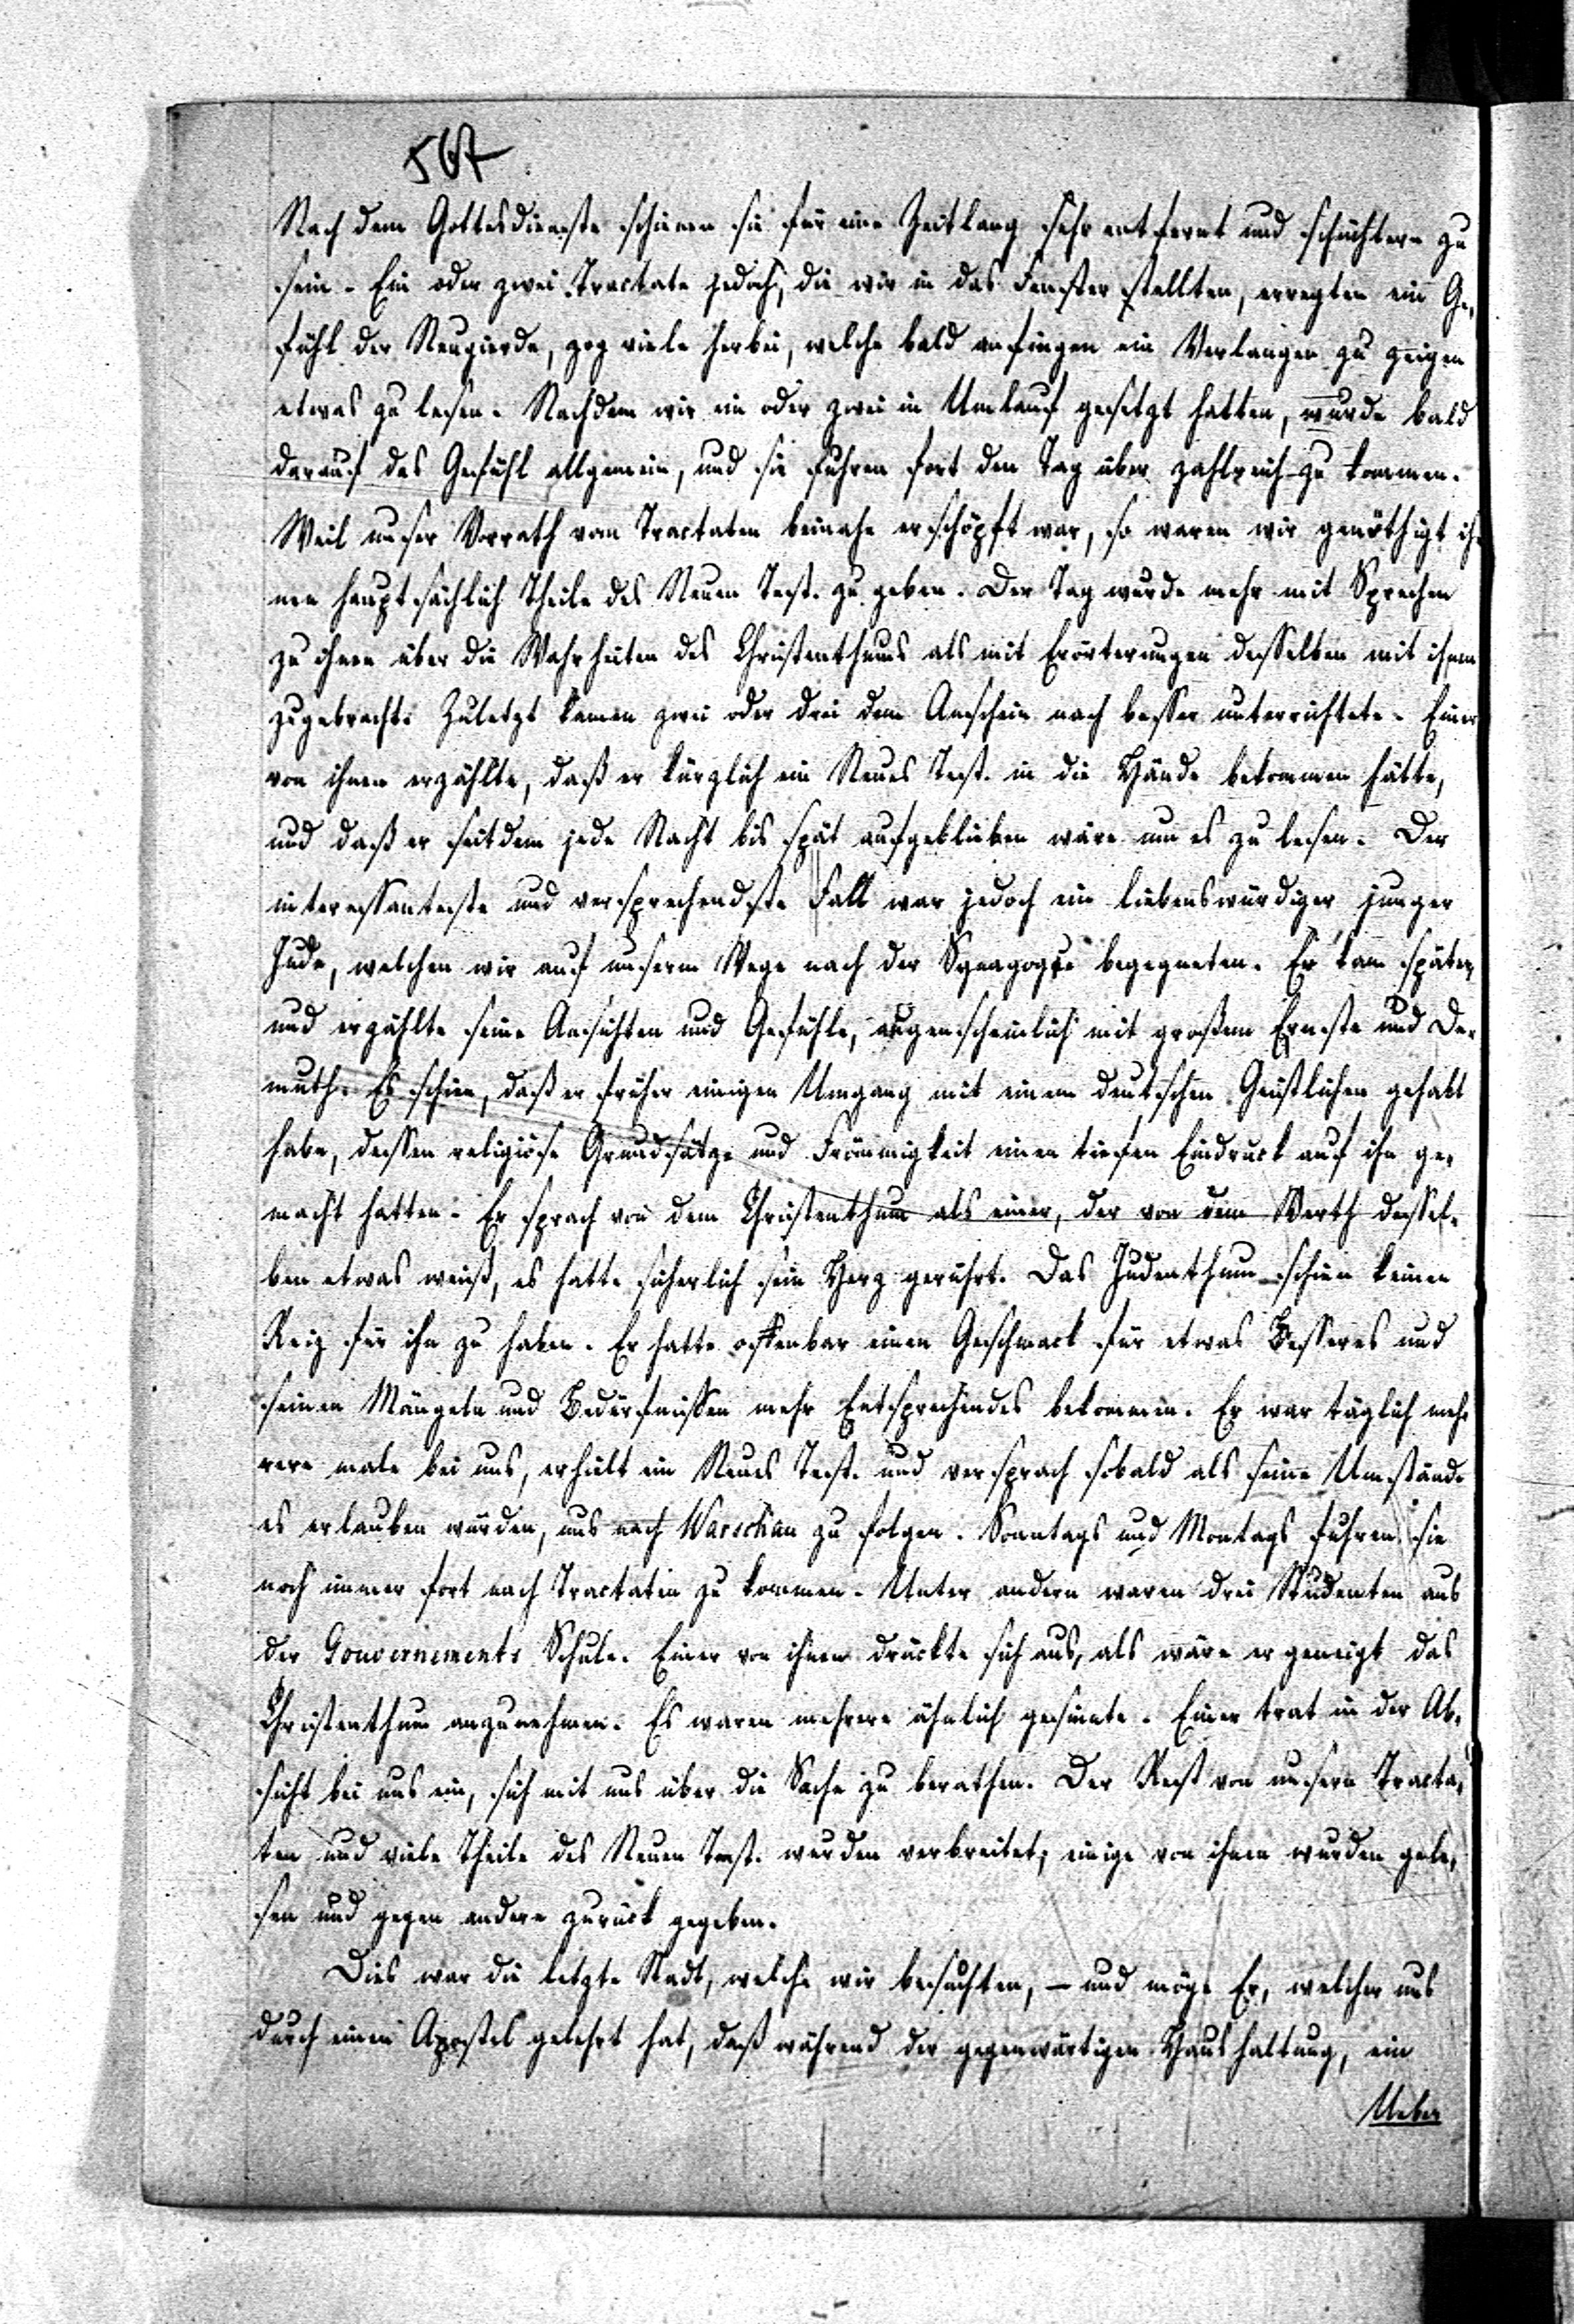 567
Nach dem Gottesdienste schienen sie für eine Zeitlang sehr entfernt und schüchtern zu
sein. Ein oder zwei Tractate jedoch, die wir in das Fenster stellten, erregten ein Ge-
fühl der Neugierde, zog viele herbei, welche bald anfingen ein Verlangen zu zeigen
etwas zu lesen. Nachdem wir ein oder zwei in Umlauf gesetzt hatten, wurde bald
darauf das Gefühl allgemein, und sie fuhren fort den Tag über zahlreich zu kommen.
Weil unser Vorrath von Tractaten beinahe erschöpft war, so waren wir genöthigt ih-
nen hauptsächlich Theile des Neuen Test. zu geben. Der Tag wurde mehr mit Sprechen
zu ihnen über die Wahrheiten des Christenthums als mit Erörterungen desselben mit ihnen
zugebracht. Zuletzt kamen zwei oder drei dem Anschein nach besser unterrichtete. Einer
von ihnen erzählte, daß er kürzlich ein Neues Test. in die Hände bekommen hätte,
und daß er seitdem jede Nacht bis spät aufgeblieben wäre um es zu lesen. Der
interessanteste und versprechendste Fall war jedoch ein liebenswürdiger junger
Jude, welchen wir auf unserm Wege nach der Synagoge begegneten. Er kam später,
und erzählte seine Ansichten und Gefühle, augenscheinlich mit großem Ernste und De-
muth. Es schien, daß er früher einigen Umgang mit einem deutschen Geistlichen gehabt
habe, dessen religiöse Grundsätze und Frömmigkeit einen tiefen Eindruck auf ihn ge-
macht hatten. Er sprach von dem Christenthum als einer, der von dem Werth dessel-
ben etwas weiß, es hatte sicherlich sein Herz gerührt. Das Judenthum schien keinen
Reiz für ihn zu haben. Er hatte offenbar einen Geschmack für etwas Besseres und
seinen Mängeln und Bedürfnissen mehr Entsprechendes bekommen. Er war täglich meh-
rere male bei uns, erhielt ein Neues Test. und versprach sobald als seine Umstände
es erlauben würden, uns nach Warschau zu folgen. Sonntags und Montags fuhren sie
noch immer fort nach Tractaten zu kommen. Unter andern waren drei Studenten aus
der Gouvernements Schule. Einer von ihnen drückte sich aus, als wäre er geneigt das
Christenthum anzunehmen. Es waren mehrere ähnlich gesinnte. Einer trat in der Ab-
sicht bei uns ein, sich mit uns über die Sache zu berathen. Der Rest von unsern Tracta-
ten und viele Theile des Neuen Test. wurden verbreitet; einige von ihnen wurden gele-
sen und gegen andere zurück gegeben.
Dies war die letzte Stadt, welche wir besuchten, – und möge Er, welcher uns
durch einen Apostel gelehrt hat, daß während der gegenwärtigen Haushaltung, ein
Ueber